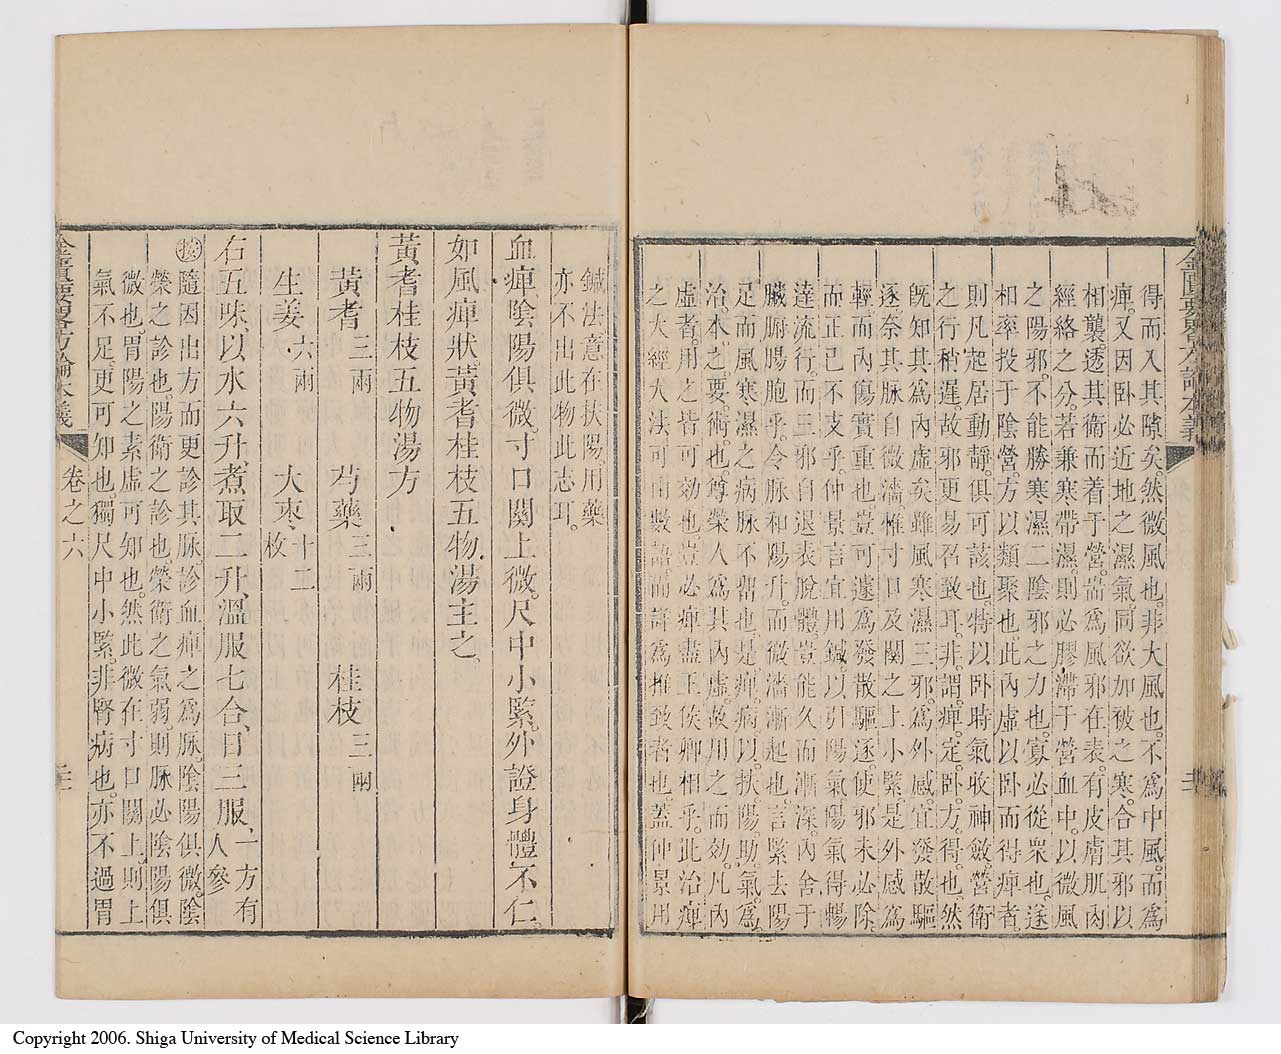 金匱要畧方論本義
得而入其隙矣。然微風也。非大風也。不為中風。而為
痺。又因卧必近地之濕氣。同欲加被之寒。合其邪以
相襲。透其衛而着于營。耑為風邪在表。有皮膚肌肉
經絡之分。若兼寒帶濕。則必膠滯于營血中。以微風
之陽邪。不能勝寒濕二陰邪之力也。寡必從衆也。遂
相率投于陰營。方以類聚也。此內虛以卧而得痺者。
則凡起居動靜。俱可該也。特以卧時氣收神斂。營衛
之行稍遲。故邪更易召致耳。非謂痺定卧方得也。然
旣知其為內虛矣。雖風寒濕三邪為外感。宜發散驅
逐。奈其脉自微濇。惟寸口及關之上小緊。是外感為
輕。而內傷實重也。豈可遽為發散驅逐。使邪未必除。
而正已不支乎。仲景言宜用鍼以引陽氣。陽氣得暢
達流行。而三邪自退表脫體。豈能久而漸深。內舍于
臟腑腸胞乎。令脉和陽升。而微濇漸起也。言緊去陽
足而風寒濕之病脉不畱也。是痺病以扶陽助氣。為
治本之要術也。尊榮人為其內虛。故用之而效。凡內
虛者。用之皆可效也。豈必痺盡王侯卿相乎。此治痺
之大經大法可由數語而詳為推致者也蓋仲景用
鍼法意在扶陽用藥
亦不出此物此志耳。
血痺陰陽俱微。寸口關上微。尺中小緊。外證身體不仁。
如風痺狀。黃耆桂枝五物湯主之。
黃耆桂枝五物湯方
黃耆三兩 芍藥三兩 桂枝三兩
生姜六兩 大棗十二枚
右五味、以水六升、煮取二升、溫服七合、日三服、一方有人參
隨因出方而更診其脉。診血痺之為脉。陰陽俱微。陰
榮之診也。陽衛之診也。榮衛之氣弱。則脉必陰陽俱
微也。胃陽之素虛可知也。然此微在寸口關上。則上
氣不足。更可知也。獨尺中小緊。非腎病也。亦不過胃
金匱要畧方論本義 卷之六